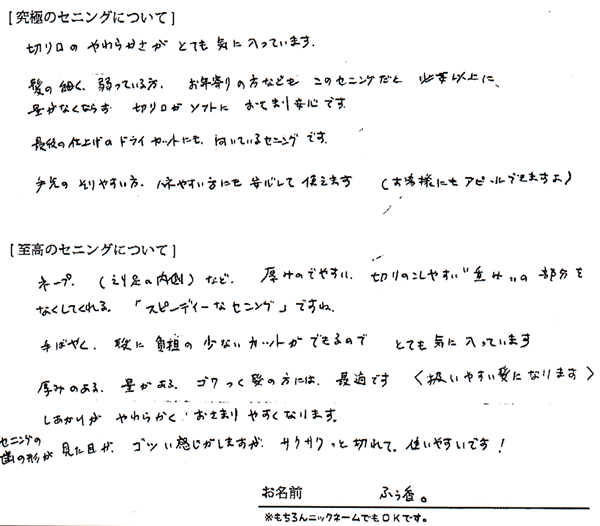 [ 究極のセニングについて ]
切り口の やわらかさが とても 気に入っています.
髪の細く. 弱っている方. お年寄りの方なども このセニングだと 必要以上に、
量がなくならず 切り口がソフトに おさまり安心です.
最後の仕上げのドライカットにも. 向いているセニングです.
毛先の そりやすい方. ハネやすい方にも 安心して 使えます (お客様にもアピールできますよ)
[ 至高のセニングについて ]
ネープ. (えり足の内側) など. 厚みのでやすい. 切りのこしやすい "重み" の 部分を
なくしてくれる. 「スピーディーなセニング」ですね.
手ばやく. 髪に 負担の 少ない カットが できるので とても 気に 入っています
厚みのある. 量がある. ゴワつく髪の方には. 最適です 〈扱いやすい髪になります〉
しあがりが やわらかく おさまり やすくなります.
セニングの歯の形が 見た目が. ゴツい感じがしますが. サクサクっと切れて. 使いやすいです!
お名前 ふう香。
※もちろんニックネームでもOKです。